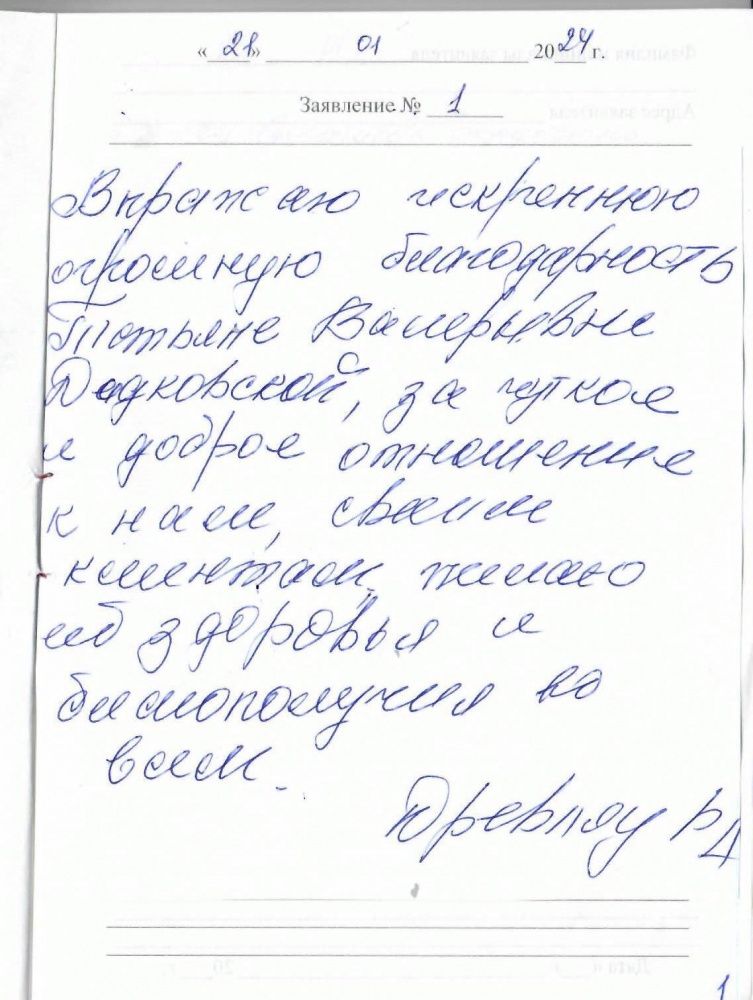 « 21» 01 2024 г.
Заявление № 1
Выражаю искреннюю
огромную благодарность
Татьяне Валерьевне
Дадковской, за чуткое
и доброе отношение
к нам, своим
клиентам, желаю
ей здоровья и
благополучия во
всем.
1